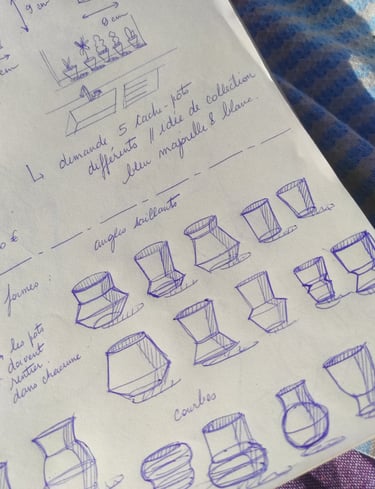 9 cm
9 cm
cm
↳ demande 5 cache-pots
différents // idée de collection
bleu majorelle & blanc.
€
angles saillants
formes
les pots
doivent
rentrer
dans chacune
courbes